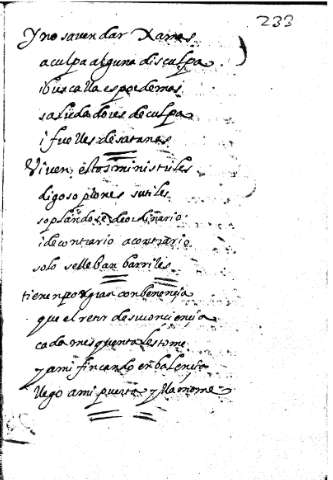 233
y no saven dar Jamas
a culpa alguna disculpa
i buscalla es por demas
saludadores de culpa
i fuelles de satanas
Viven estos ministriles
digo soplones sutiles
soplando de ordinario
i de contrario a contrario
solo se lleban barriles
tienen por gias conbenencia
que el retor de su conciencia
cada mes quenta les tome
y a mi fincando en balencia
llego a mi puerta y llamome